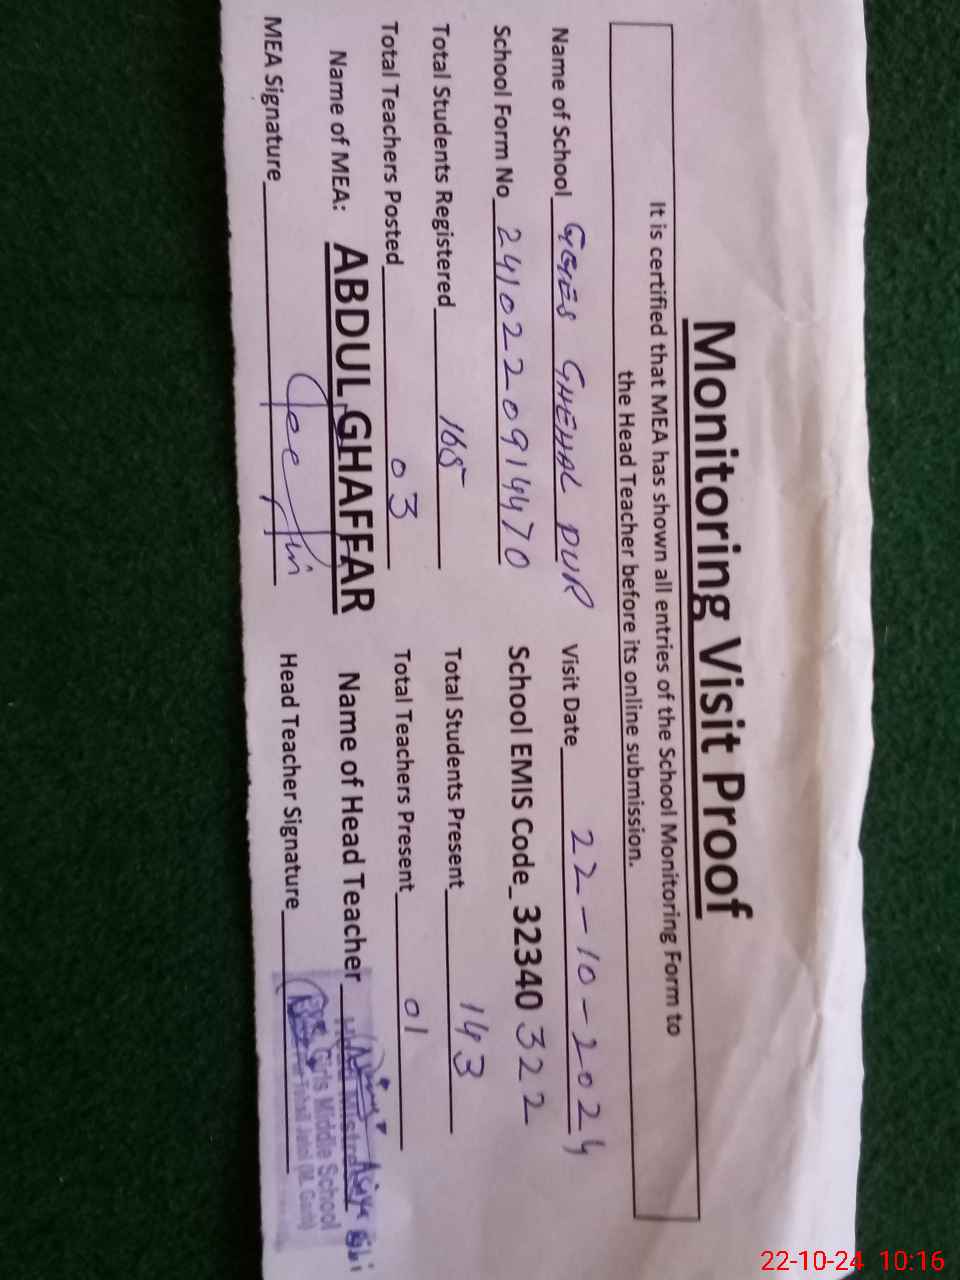 Monitoring Visit Proof
It is certified that MEA has shown all entries of the School Monitoring Form to
the Head Teacher before its online submission.
Name of School GGES GHEHAL PUR Visit Date 22-10-2024
School Form No 2410220914470 School EMIS Code_32340322
Total Students Registered 165 Total Students Present 143
Total Teachers Posted 03 Total Teachers Present 01
Name of MEA: ABDUL GHAFFAR Name of Head Teacher
MEA Signature Head Teacher Signature
Girls Middle School
22-10-24 10:16